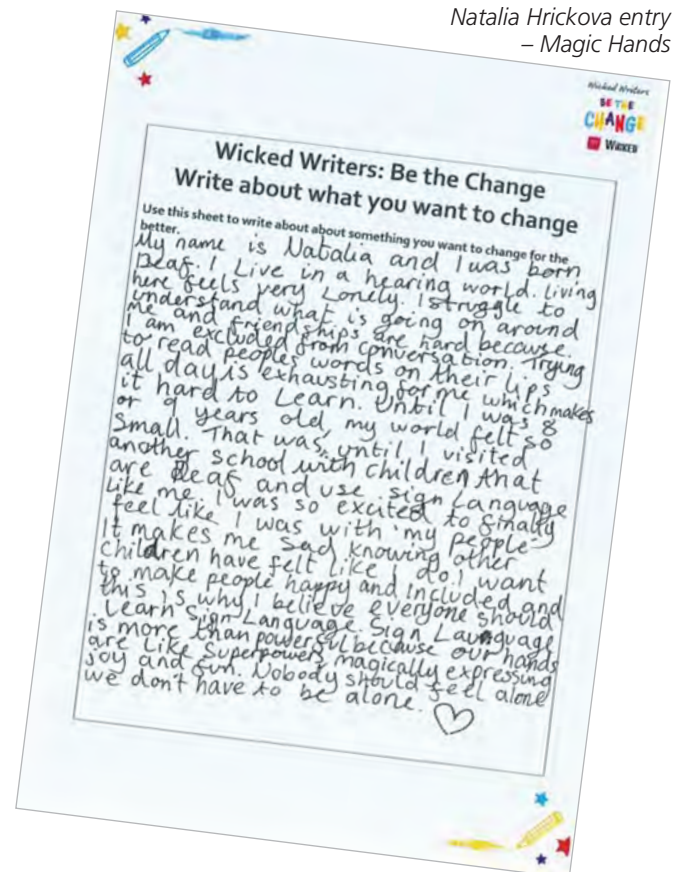 Natalia Hrickova entry
– Magic Hands
Wicked Writers
BE THE
CHANGE
WICKED
Wicked Writers: Be the Change
Write about what you want to change
Use this sheet to write about about something you want to change for the
better.
My name is Natalia and I was born
Deaf. I Live in a hearing world. Living
here feels very Lonely. I struggle to
understand what is going on around
me and friendships are hard because.
I am excluded from conversation. Trying
to read peoples words on their lips
all day is exhausting for me which makes
it hard to Learn. Until I was 8
or 9 years old, my world felt so
Small. That was, until I visited
another school with children that
are Deaf and use sign Language
Like me. I was so excited to finally
feel like I was with 'my people'
It makes me sad knowing other
children have felt like I do. I want
to make people happy and included and
this is why I believe everyone should
Learn Sign Language. Sign Language
is more than powerful because our hands
are Like Superpowers, magically expressing
joy and fun. Nobody should feel alone
we don't have to be alone.